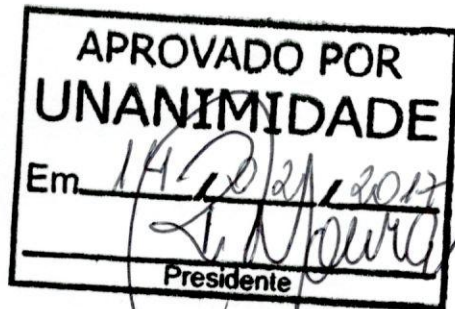 APROVADO POR
UNANIMIDADE
Em 14 / 02 / 2017
Presidente